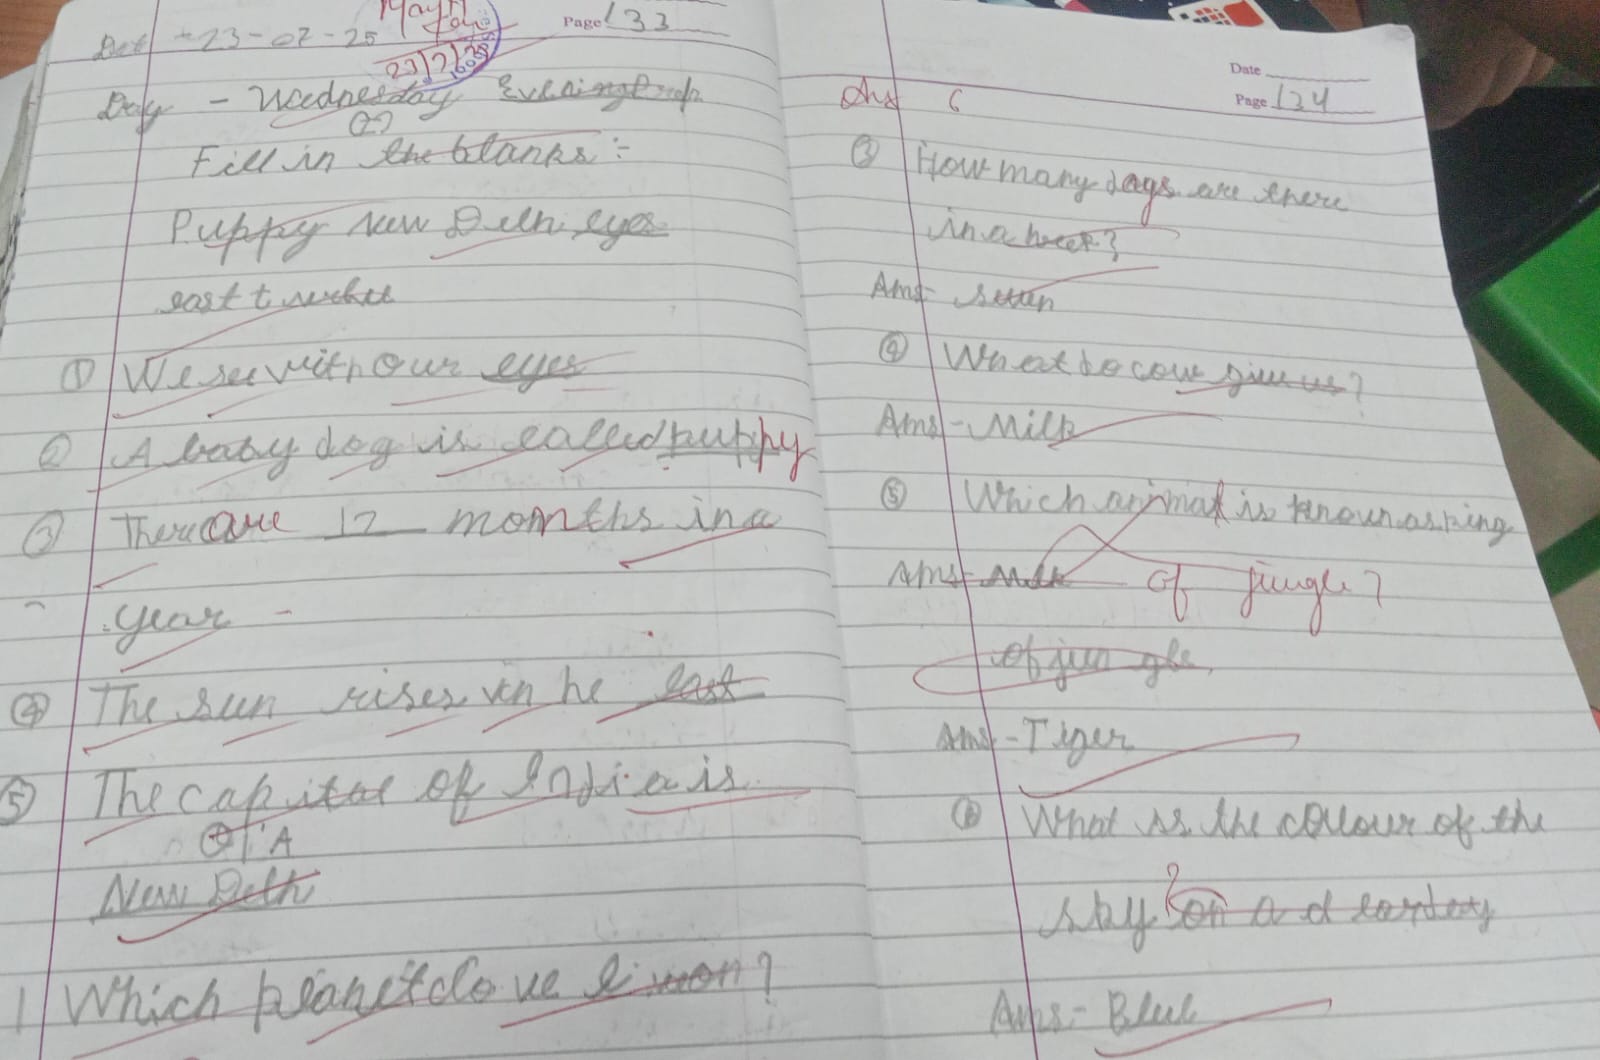 Page 133
Date - 23-07-25
23/7/2025
Day - Wednesday Evening Prep
Q2
Fill in the blanks :-
Puppy New Delh eyes
east twelve
① We see with our eyes
② A baby dog is called puppy
③ There are 12 months in a
year -
④ The sun rises in he east
⑤ The capital of India is
Q/A
New Delh
1 Which planet do we live on?
Date
Page 134
Ans 6
③ How many days are there
in a week?
Ans- seven
④ What do cow give us?
Ans - Milk
⑤ Which animal is known as king
Ans- Milk of jungle?
of jun gle
Ans - Tiger
⑥ What is the colour of the
sky? on a clear day
Ans - Blue